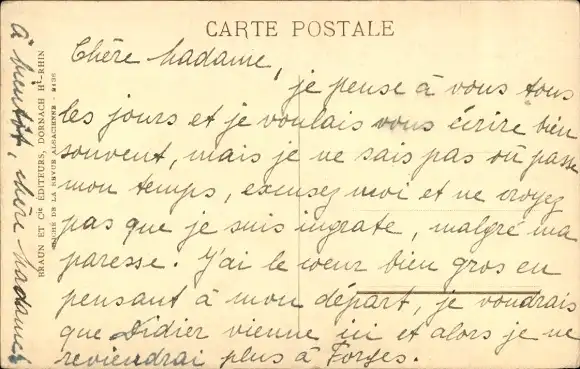 CARTE POSTALE
Chère Madame,
je pense à vous tous
les jours et je voulais vous écrire bien
souvent, mais je ne sais pas où passe
mon temps, excusez moi et ne croyez
pas que je suis ingrate, malgré ma
paresse. J'ai le cœur bien gros en
pensant à mon départ, je voudrais
que Didier vienne ici et alors je ne
reviendrai plus à Forges.
à bientôt, chère Madame.
BRAUN ET Cie ÉDITEURS, DORNACH Ht-RHIN
DE LA REVUE ALSACIENNE